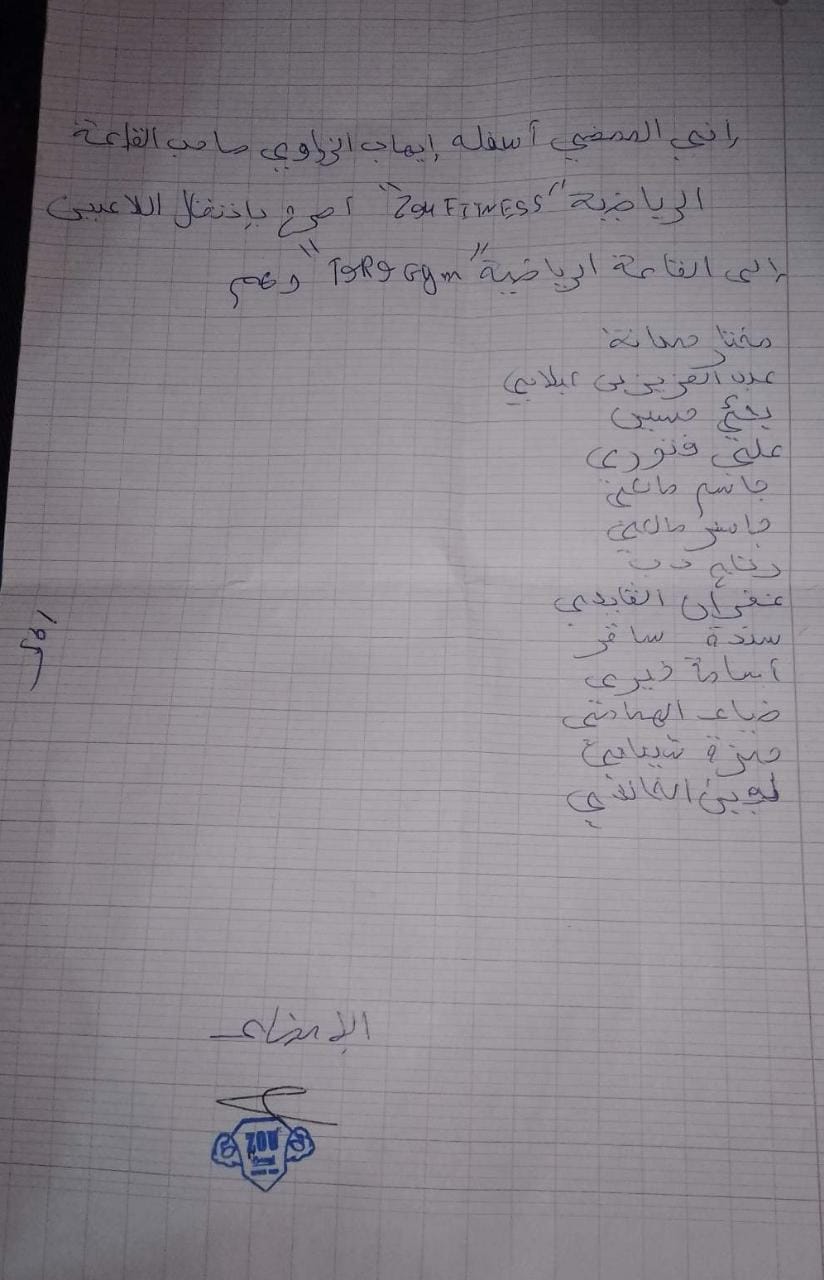 إني الممضي أسفله إيهاب الزواوي صاحب القاعة
الرياضية "ZOU FITNESS" أصرح بإنتقال اللاعبين
إلى القاعة الرياضية "TORO Gym" وهم
مختار
عبد العزيز بن عبلابي
يحي حسين
علي فنوري
جاسم
جاسر
رتاج
غفران القايدي
سندة ساقر
أسامة خيري
ضياء الهمامي
حمزة
لجين الخالفي
الإمضاء
ZOU